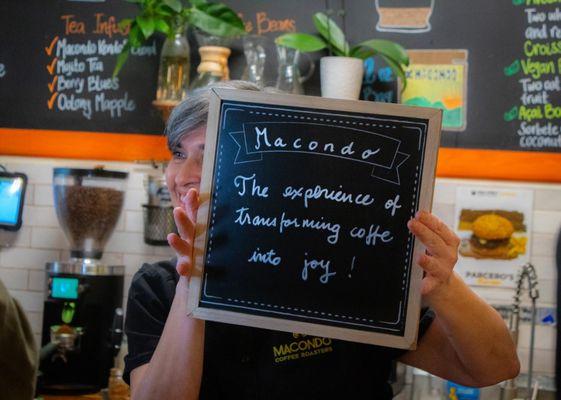 Tea Infus
Macondo
Mojito Tea
Berry Blues
Oolong Mapple
Beans
Two
and
re
Croiss
Vegan B
Two
fruit
Açaí Bo
Sorbete
coconut
Macondo
The experience of
transforming coffee
into joy !
MACONDO
COFFEE ROASTERS
PARCERO'S